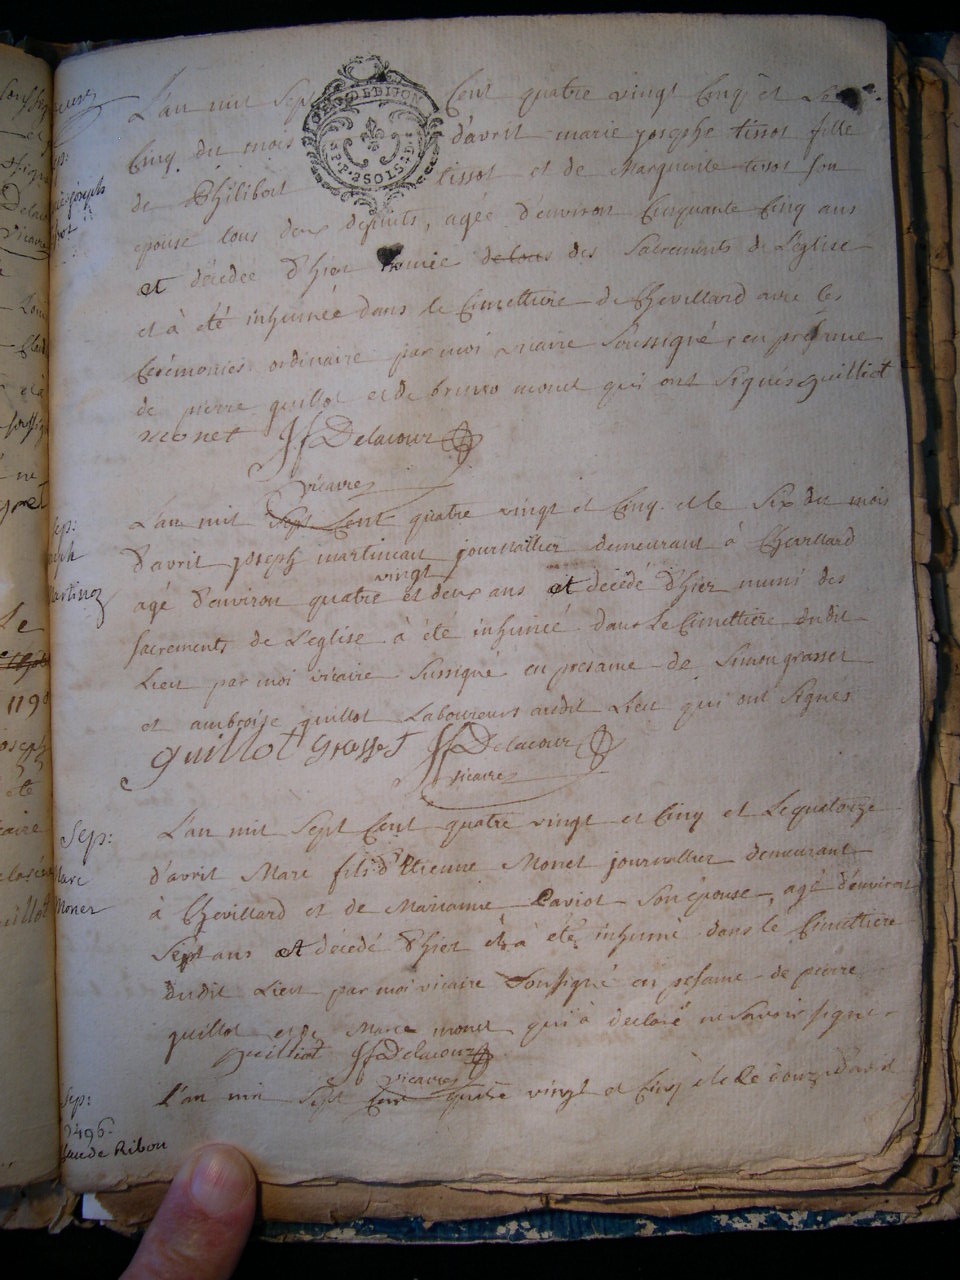 L'an mil Sept Cent quatre vingt Cinq et Le
DE DIJON
2 SOLS 4 D
Cinq du mois d'avril marie josephe tissot fille
de Philibert tissot et de Marguerite tissot son
epouse tous deux defunts, agée d'environ Cinquante Cinq ans
et décédée d'hier munie de tous des Sacrements de L'église
et à été inhumée dans le Cimettiere de Chevillard avec les
Cérémonies ordinaire par moi vicaire Soussigné en présence
de pierre guillot et de bruno monet qui ont signés guilliot
monet JfDelacour
vicaire
Sep:
joseph
Martinoz
L'an mil Sept Cent quatre vingt et Cinq et le Six du mois
d'avril joseph martineau journallier demeurant à Chevillard
agé d'environ quatre vingt et deux ans et décédé d'hier muni des
Sacrements de L'eglise à éte inhumé dans Le Cimettiere dudit
Lieu par moi vicaire Sussigné en presame de Simon grasset
et ambroise guillot Laboureurs audit Lieu qui ont Signés
guillot grasset JfDelacour
vicaire
Sep:
Marc
Monet
L'an mil Sept Cent quatre vingt et Cinq et Le quatorze
d'avril Marc fils d'Etienne Monet journallier demeurant
à Chevillard et de Marianne Caviot Son épouse, agé d'environ
Sept ans et décédé d'hier et à été inhumé dans le Cimettiere
dudit Lieu par moi vicaire Soussigné en présame de pierre
guillot et de Marc monet qui à déclaré ne Savoir signer
guilliot JfDelacour
vicaire
Sep:
Claude Ribon
L'an mil Sept Cent quatre vingt et Cinq et le douze d'avril